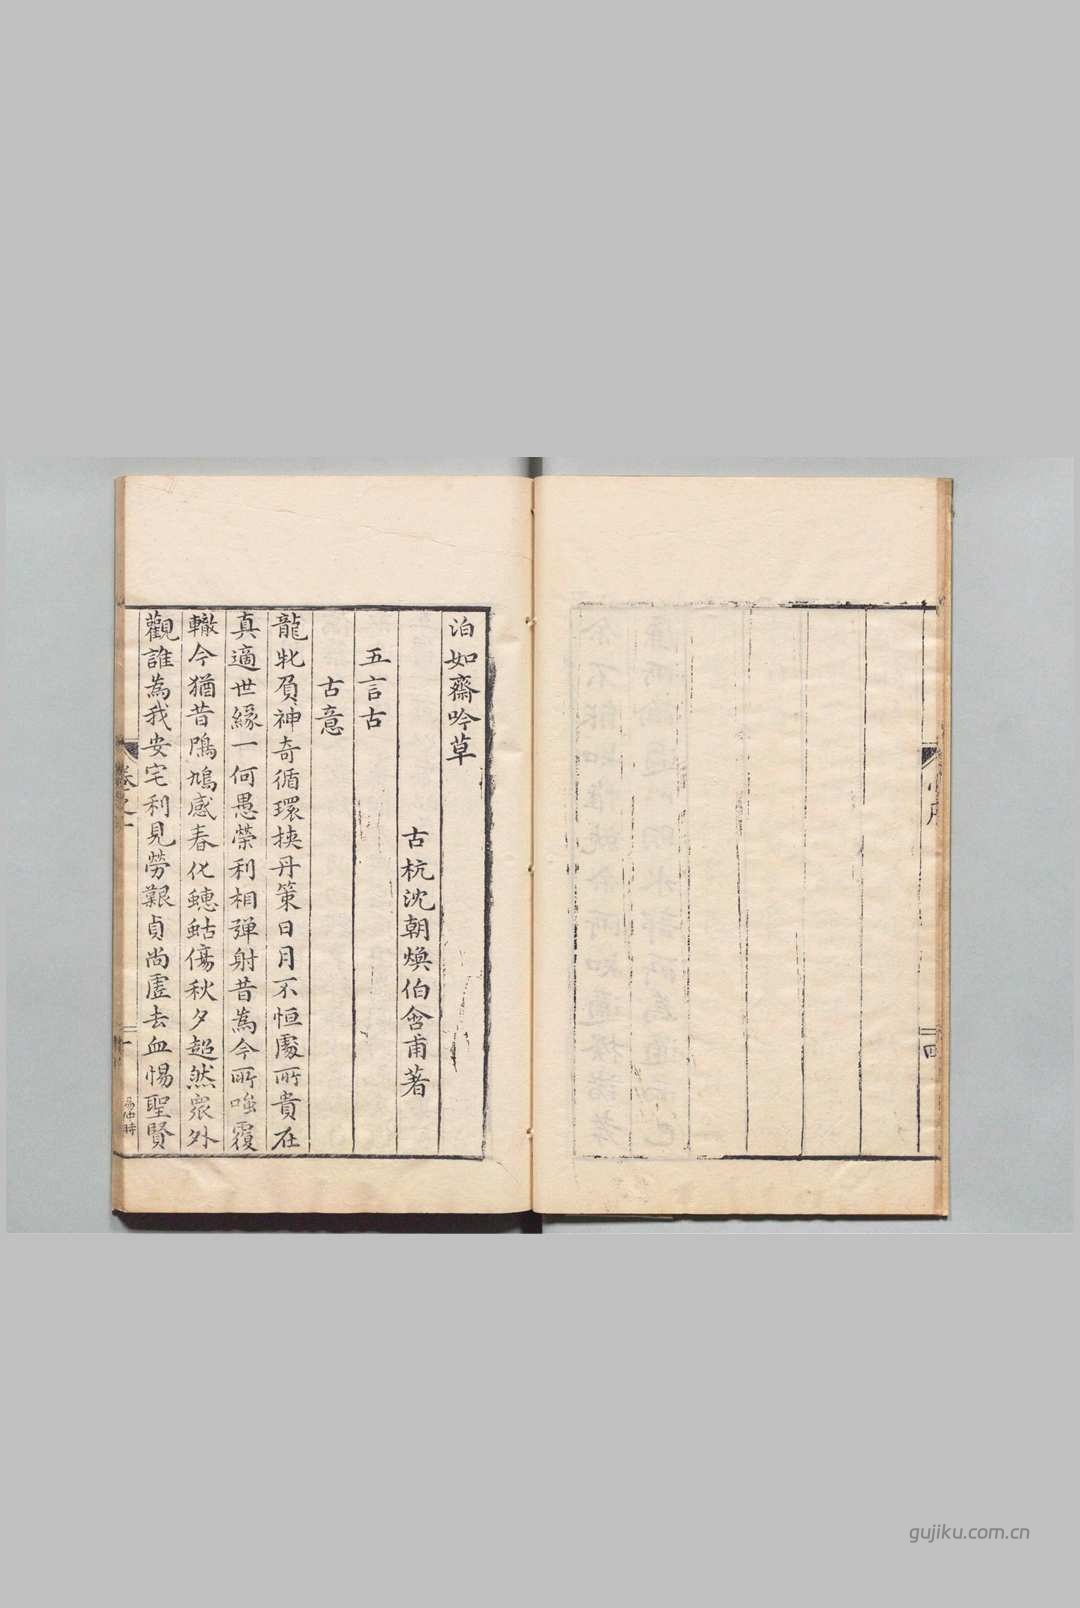 四
泊如齋吟草
古杭沈朝煥伯含甫著
五言古
古意
龍牝屓神奇循環挾丹策日月不恒處所貴在
真適世緣一何愚榮利相彈射昔為今所嗤覆
轍今猶昔鳲鳩感春化蟪蛄傷秋夕超然眾外
觀誰為我安宅利見勞艱貞尚虛去血惕聖賢
卷之一
一
gujiku.com.cn